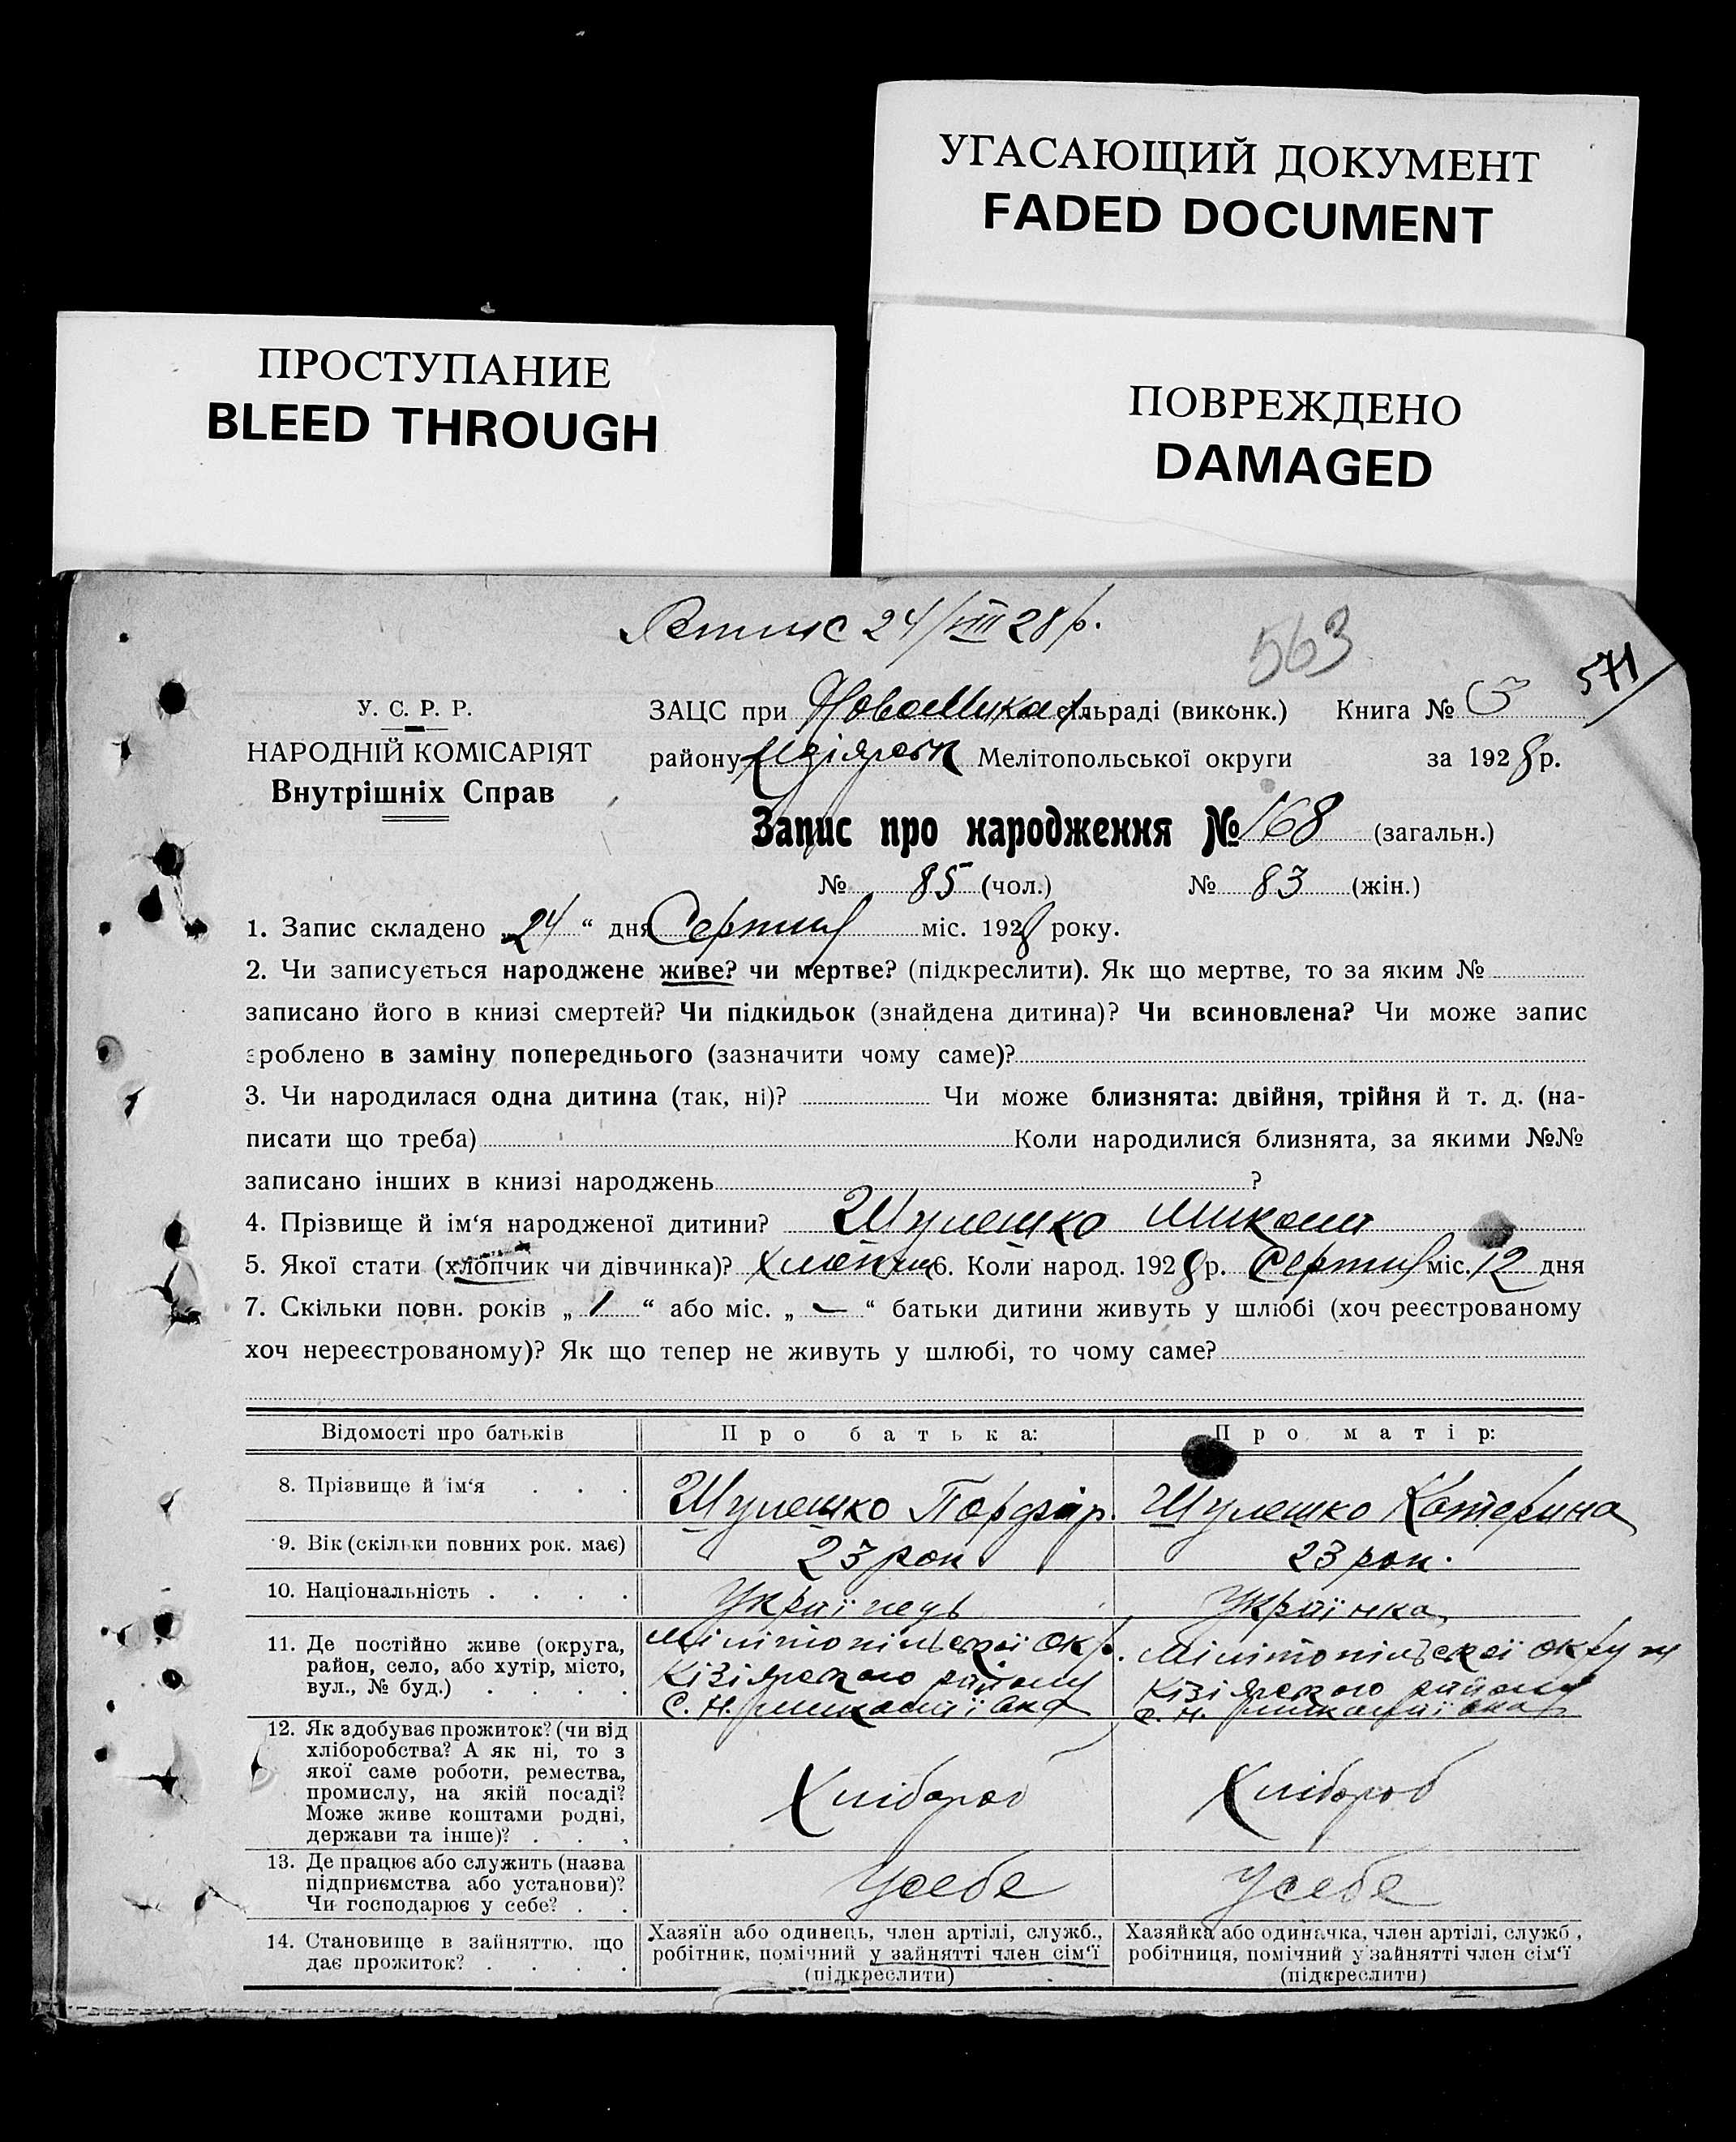 УГАСАЮЩИЙ ДОКУМЕНТ
FADED DOCUMENT
ПРОСТУПАНИЕ
BLEED THROUGH
ПОВРЕЖДЕНО
DAMAGED
24/VIII 28 р.
563
571
У. С. Р. Р.
НАРОДНІЙ КОМІСАРІЯТ
Внутрішніх Справ
ЗАЦС при сільраді (виконк.) Книга №
району Мелітопольської округи за 1928 р.
Запис про народження № 168 (загальн.)
№ 85 (чол.) № 83 (жін.)
1. Запис складено „24“ дня Серпня міс. 1928 року.
2. Чи записується народжене живе? чи мертве? (підкреслити). Як що мертве, то за яким №
записано його в книзі смертей? Чи підкидьок (знайдена дитина)? Чи всиновлена? Чи може запис
зроблено в заміну попереднього (зазначити чому саме)?
3. Чи народилася одна дитина (так, ні)? Чи може близнята: двійня, трійня й т. д. (на-
писати що треба) Коли народилися близнята, за якими №№
записано інших в книзі народжень ?
4. Прізвище й ім‘я народженої дитини? Шулешко Микола
5. Якої стати (хлопчик чи дівчинка)? 6. Коли народ. 1928 р. Серпня міс. 12 дня
7. Скільки повн. років „ 1 “ або міс. „ — “ батьки дитини живуть у шлюбі (хоч реєстрованому
хоч нереєстрованому)? Як що тепер не живуть у шлюбі, то чому саме?
Відомості про батьків
Про батька:
Про матір:
8. Прізвище й ім‘я . . .
Шулешко Порфир.
Шулешко Катерина
9. Вік (скільки повних рок. має)
23 рок
23 рок.
10. Національність . . . .
Українець
Українка
11. Де постійно живе (округа,
район, село, або хутір, місто,
вул., № буд.) . . . .
Мілітопільської окр.
Кізіярского району
с. Н. Миколаївка
Мілітопільскої округи
Кізіярского району
с. Н. Миколаївка
12. Як здобуває прожиток? (чи від
хліборобства? А як ні, то з
якої саме роботи, ремества,
промислу, на якій посаді?
Може живе коштами родні,
держави та інше)? . . .
Хлібороб
Хлібороб
13. Де працює або служить (назва
підприємства або установи)?
Чи господарює у себе? . .
Усебе
Усебе
14. Становище в зайняттю, що
дає прожиток? . . . .
Хазяїн або одинець, член артілі, служб.,
робітник, помічний у зайнятті член сім‘ї
(підкреслити)
Хазяйка або одиначка, член артілі, служб.,
робітниця, помічний у зайнятті член сім‘ї
(підкреслити)